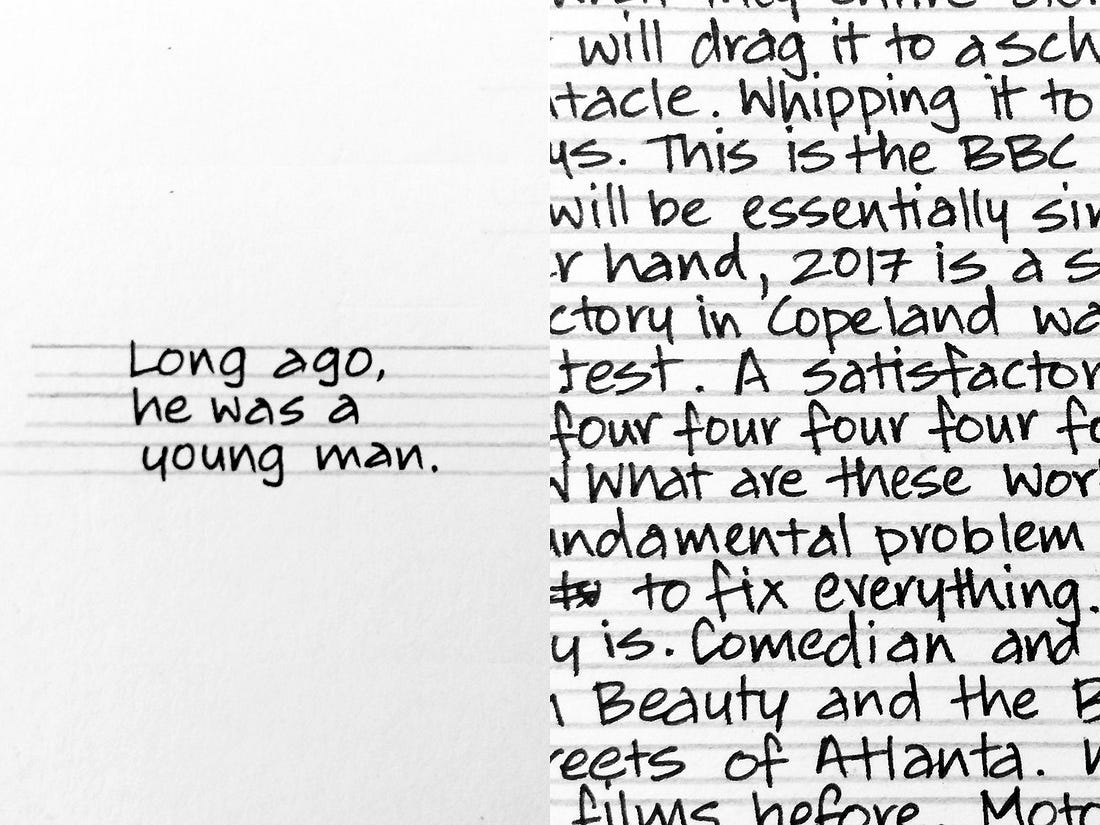 Long ago,
he was a
young man.
will drag it to a sch
tacle. Whipping it to
us. This is the BBC
will be essentially sim
r hand, 2017 is a s
ctory in Copeland wa
test. A satisfactor
four four four four fo
What are these wor
undamental problem
to fix everything.
y is. Comedian and
Beauty and the B
reets of Atlanta.
films before. Moto